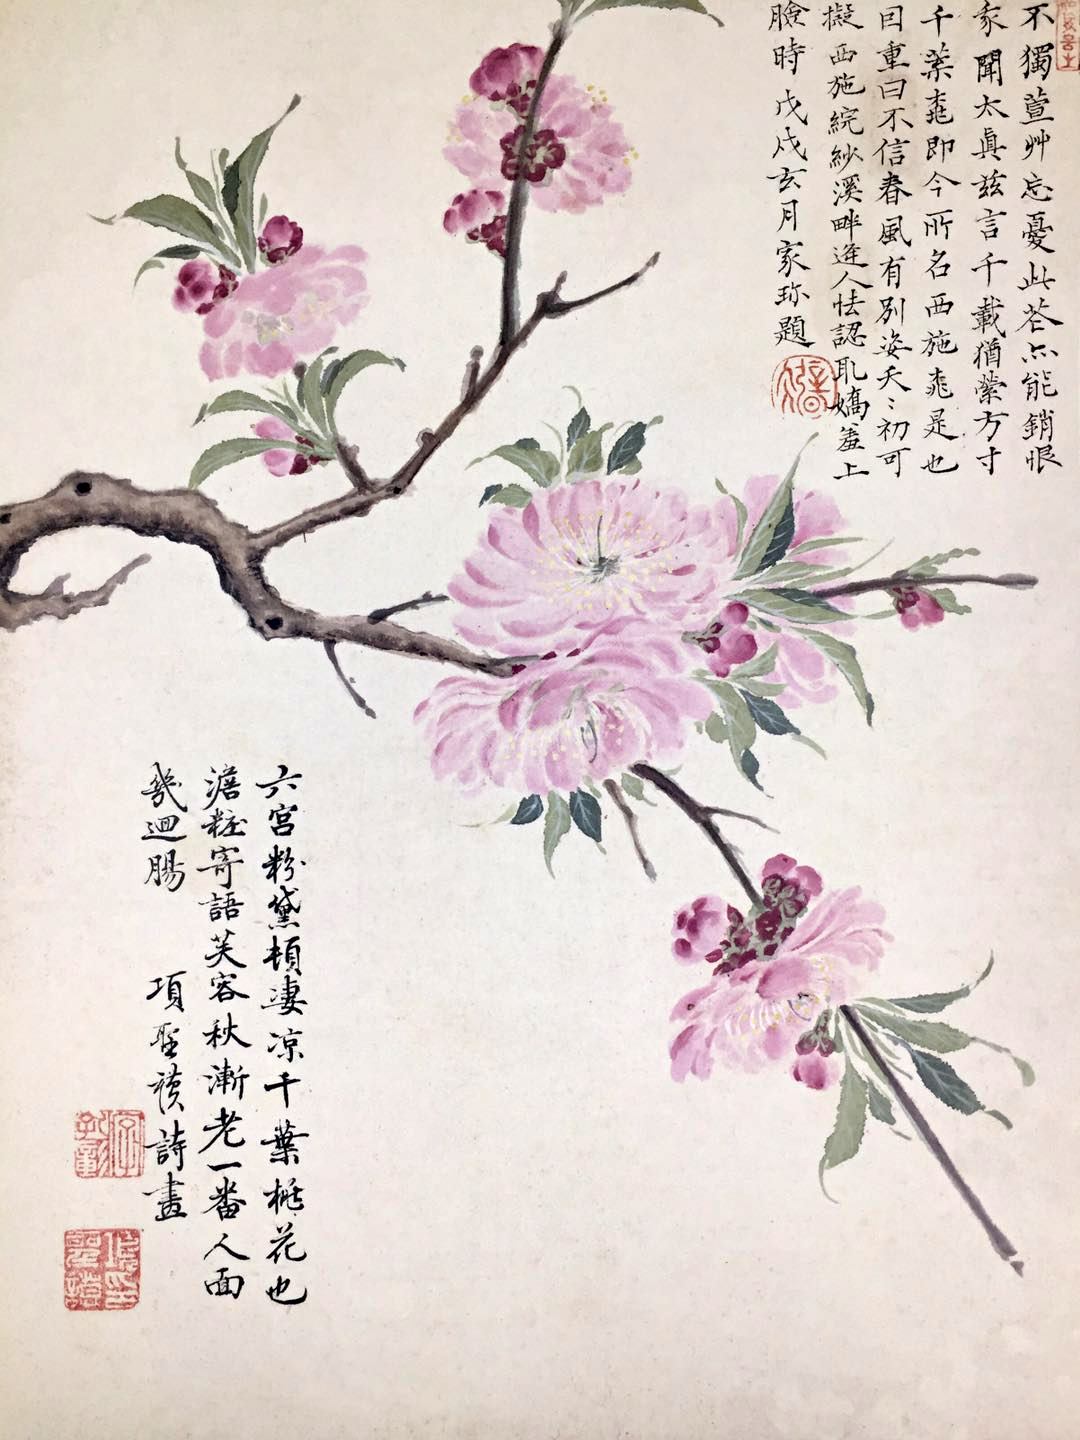 不獨萱艸忘憂此花亦能銷恨
家聞太真茲言千載猶縈方寸
千葉桃即今所名西施桃是也
因重曰不信春風有別姿夭〻初可
擬西施浣紗溪畔逢人怯認取嬌羞上
臉時 戊戌玄月家珎題
六宮粉黛頓淒涼千葉桃花也
澹粧寄語芙容秋漸老一番人面
幾迴腸 項聖謨詩畫